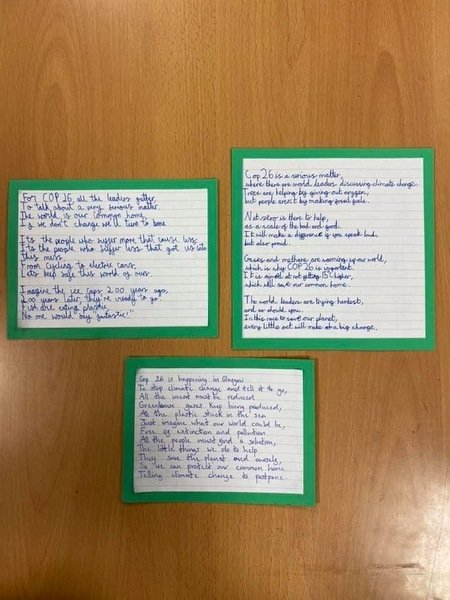 For COP 26 all the leaders gather
To talk about a very serious matter.
The world is our common home,
If we don't change we'll turn to bone

It's the people who suffer more that cause less
It's the people who suffer less that got us into
this mess.
From cycling to electric cars,
Let's safe this world of ours

Imagine the ice caps 200 years ago,
200 years later, they're ready to go!
Fish are eating plastic,
No one would say fantastic!"

Cop 26 is a serious matter,
where there are world leaders discussing climate change.
Trees are helping by giving out oxygen,
but people aren't by making fossil fuels.

is there to help,
as a scale of the bad and good.
It will make a difference if you speak loud,
but also proud.

Gases and methane are warming up our world,
which is why COP 26 is important.
It is aimed at not getting 1.5°C higher,
which will save our common home.

The world leaders are trying hardest,
and so should you.
In this race to save our planet,
every little act will make a big change.

Cop 26 is happening in Glasgow
To stop climate change and tell it to go,
All the meat must be reduced
Greenhouse gases keep being produced,
All the plastic stuck in the sea
Just imagine what our world could be,
Free of extinction and pollution
All the people must find a solution,
The little things we do to help
They save the planet and ourself,
So we can protect our common home
Telling climate change to postpone.